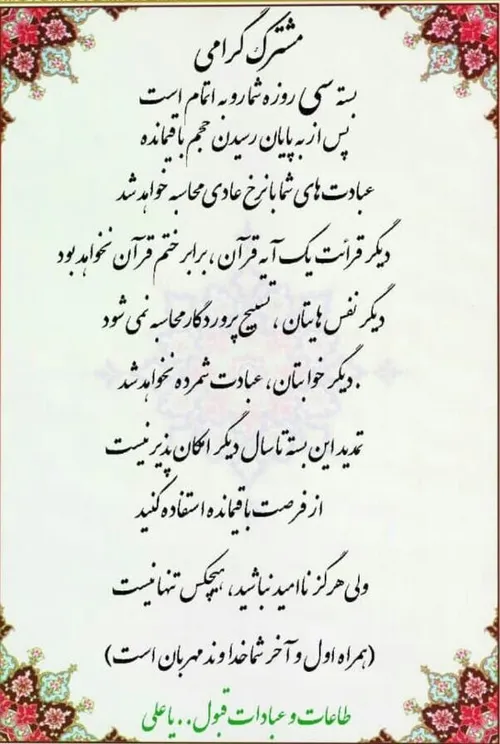 مشترک گرامی
بسته سی روزه شما رو به اتمام است
پس از به پایان رسیدن حجم باقیمانده
عبادت های شما با نرخ عادی محاسبه خواهد شد
دیگر قرائت یک آیه قرآن ، برابر ختم قرآن نخواهد بود
دیگر نفس هایتان ، تسبیح پروردگار محاسبه نمی شود
. دیگر خوابتان ، عبادت شمرده نخواهد شد
تمدید این بسته تا سال دیگر امکان پذیر نیست
از فرصت باقیمانده استفاده کنید
ولی هرگز ناامید نباشید ، هیچکس تنها نیست
(همراه اول و آخر شما خداوند مهربان است)
طاعات و عبادات قبول . . یا علی